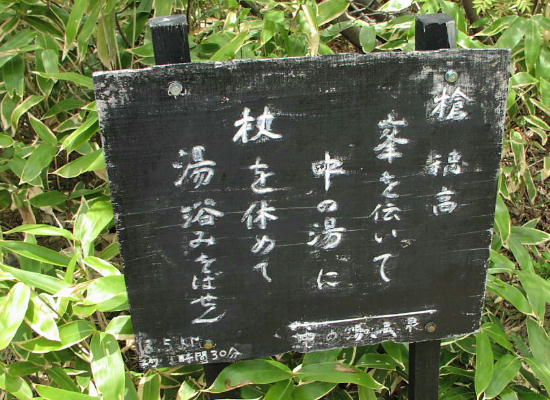 槍 穂高
峯を伝いて
中の湯に
杖を休めて
湯浴みをばせん
中の湯温泉
8.5KM
約 時間30分